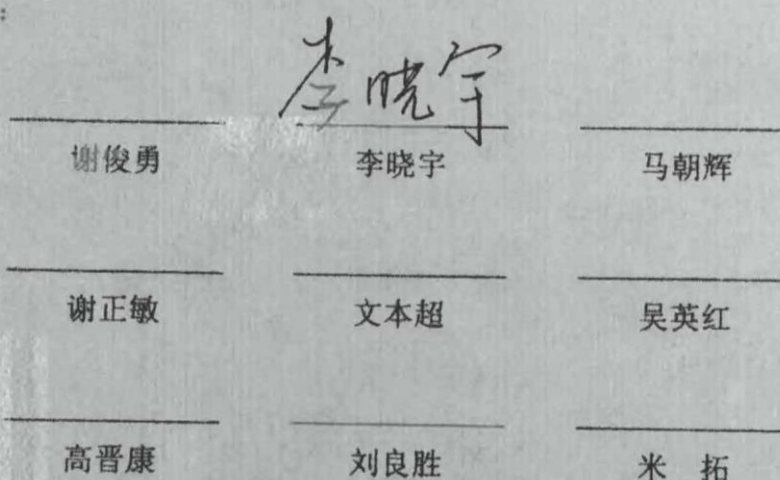 :
李晓宇
谢俊勇 李晓宇 马朝辉
谢正敏 文本超 吴英红
高晋康 刘良胜 米 拓